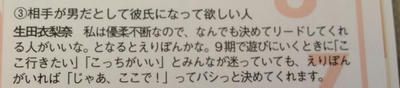 ③相手が男だとして彼氏になって欲しい人
生田衣梨奈　私は優柔不断なので、なんでも決めてリードしてくれ
る人がいいな。となるとえりぽんかな。9期で遊びにいくときに「こ
こ行きたい」「こっちがいい」とみんなが迷っていても、えりぽん
がいれば「じゃあ、ここで！」ってバシっと決めてくれます。